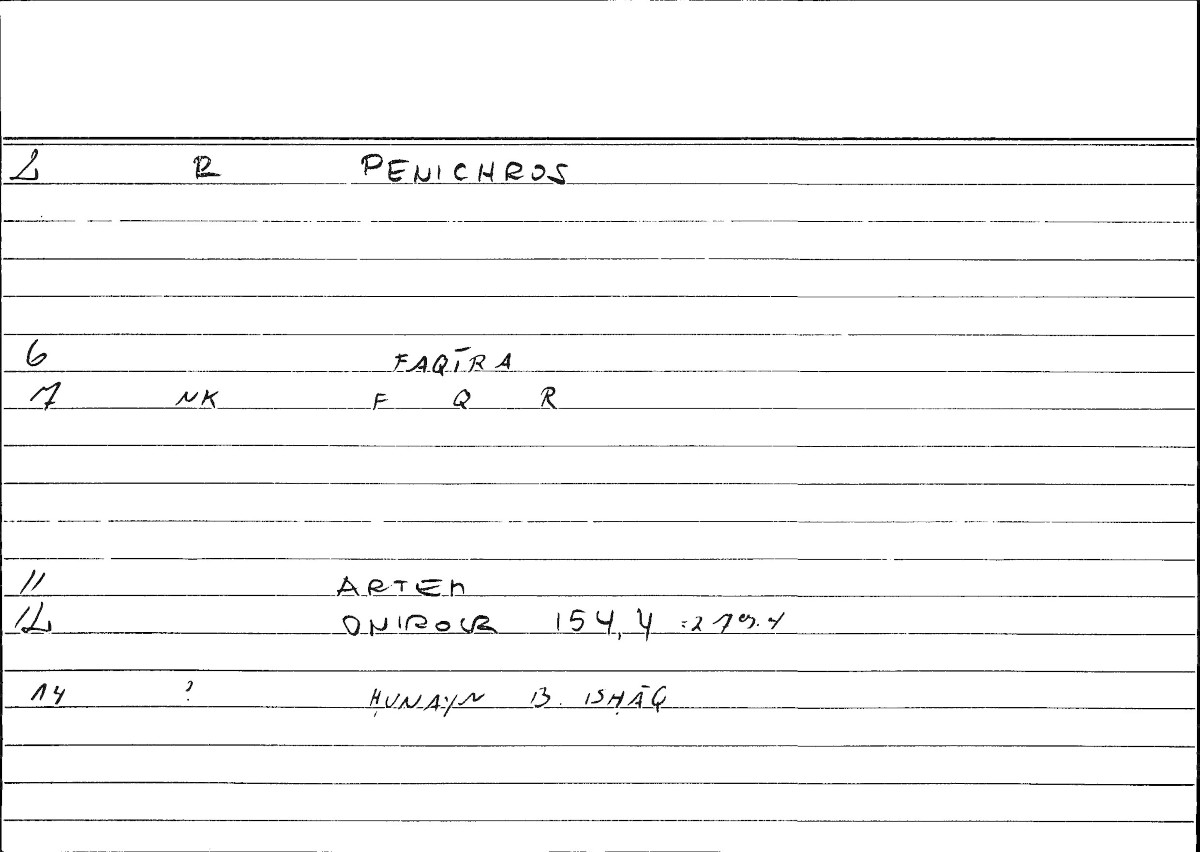 2 R PENICHROS
6 FAQĪRA
7 NK F Q R
11 ARTEM
12 ONIROCR 154,4 =279.4
14 ? ḤUNAYN B. ISḤĀQ